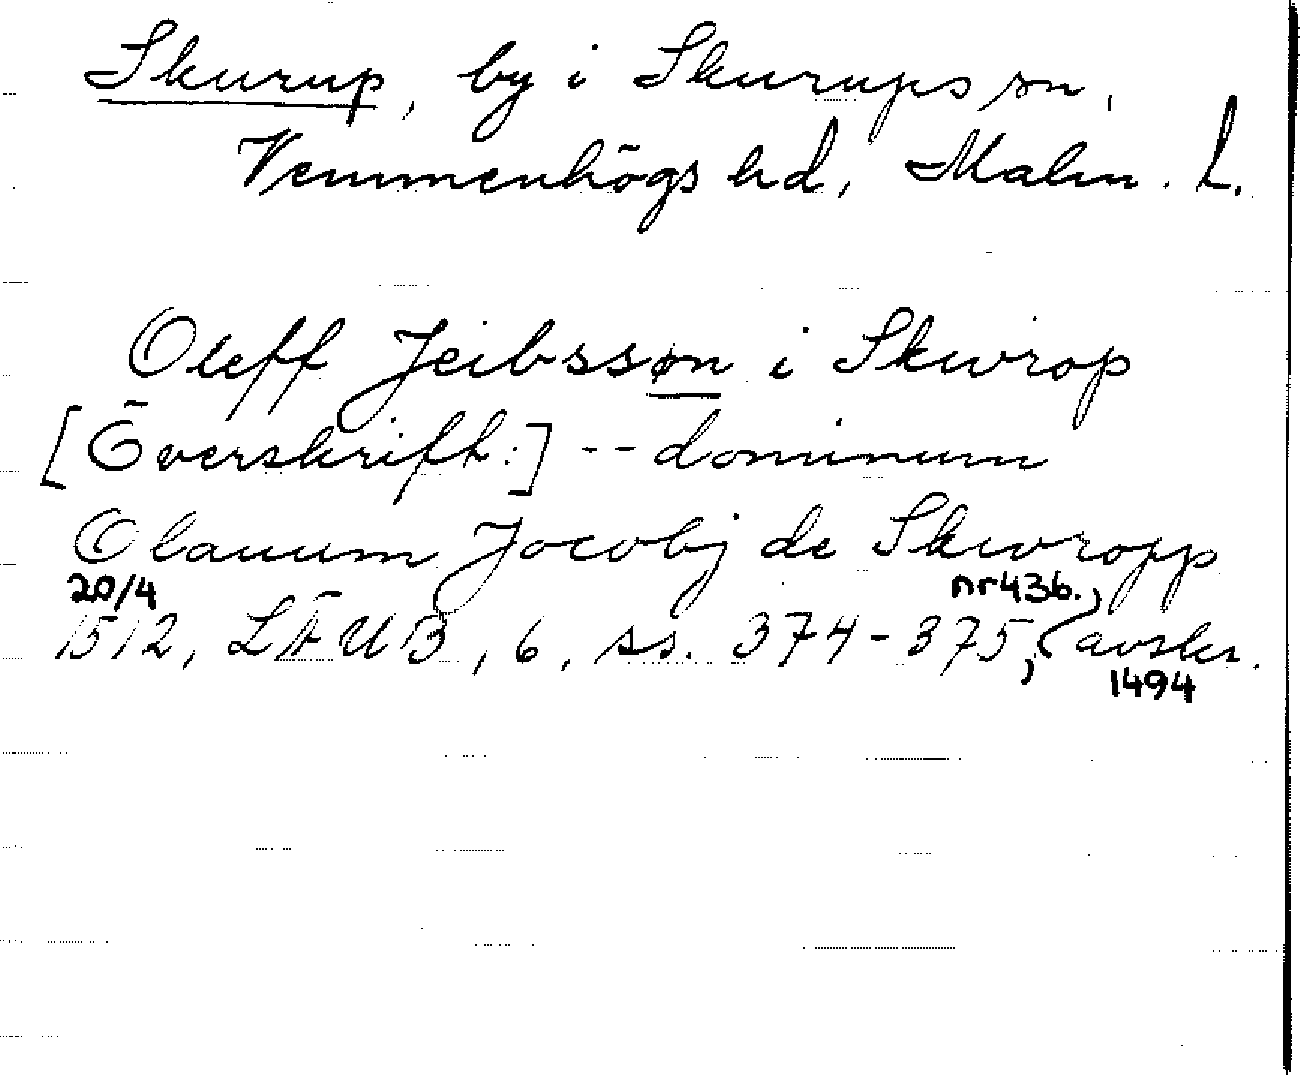 Skurup, by i Skurups sn,
Vemmenhögs hd, Malm. L.
Oleff Jeibssøn i Skwrop
[Överskrift:] -- dominum
Olauum Jacobj de Skwropp
20/4 nr 436.,
1512, LÄUB, 6, ss. 374-375, (avskr.
1494